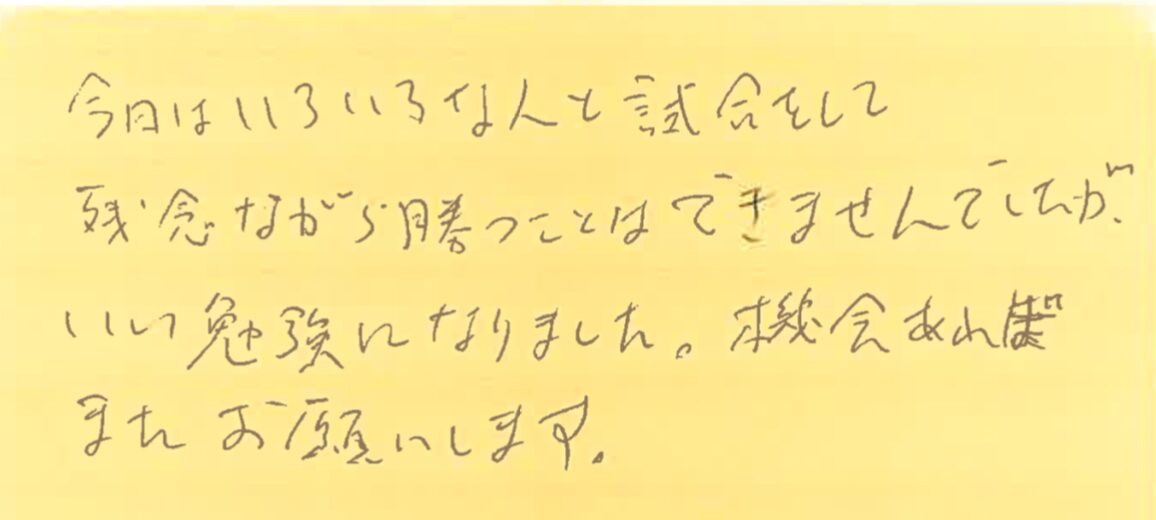 今日はいろいろな人と試合をして
残念ながら勝つことはできませんでしたが、
いい勉強になりました。機会あれば
またお願いします。